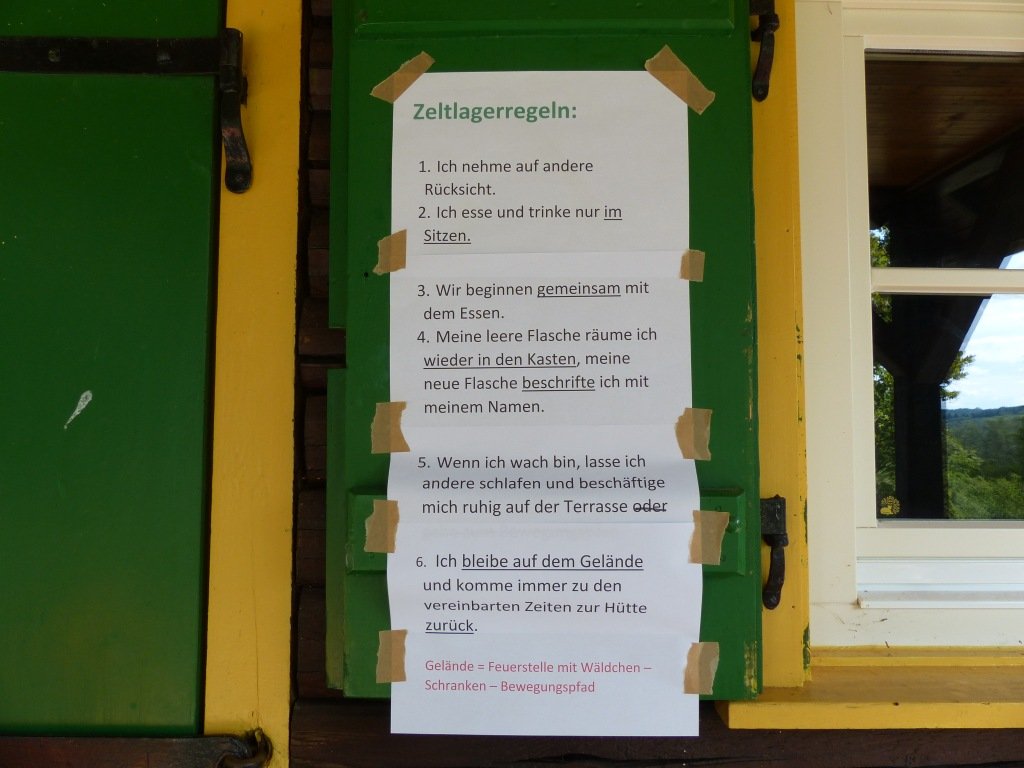 Zeltlagerregeln:
1. Ich nehme auf andere
Rücksicht.
2. Ich esse und trinke nur im
Sitzen.
3. Wir beginnen gemeinsam mit
dem Essen.
4. Meine leere Flasche räume ich
wieder in den Kasten, meine
neue Flasche beschrifte ich mit
meinem Namen.
5. Wenn ich wach bin, lasse ich
andere schlafen und beschäftige
mich ruhig auf der Terrasse oder
6. Ich bleibe auf dem Gelände
und komme immer zu den
vereinbarten Zeiten zur Hütte
zurück.
Gelände = Feuerstelle mit Wäldchen –
Schranken – Bewegungspfad